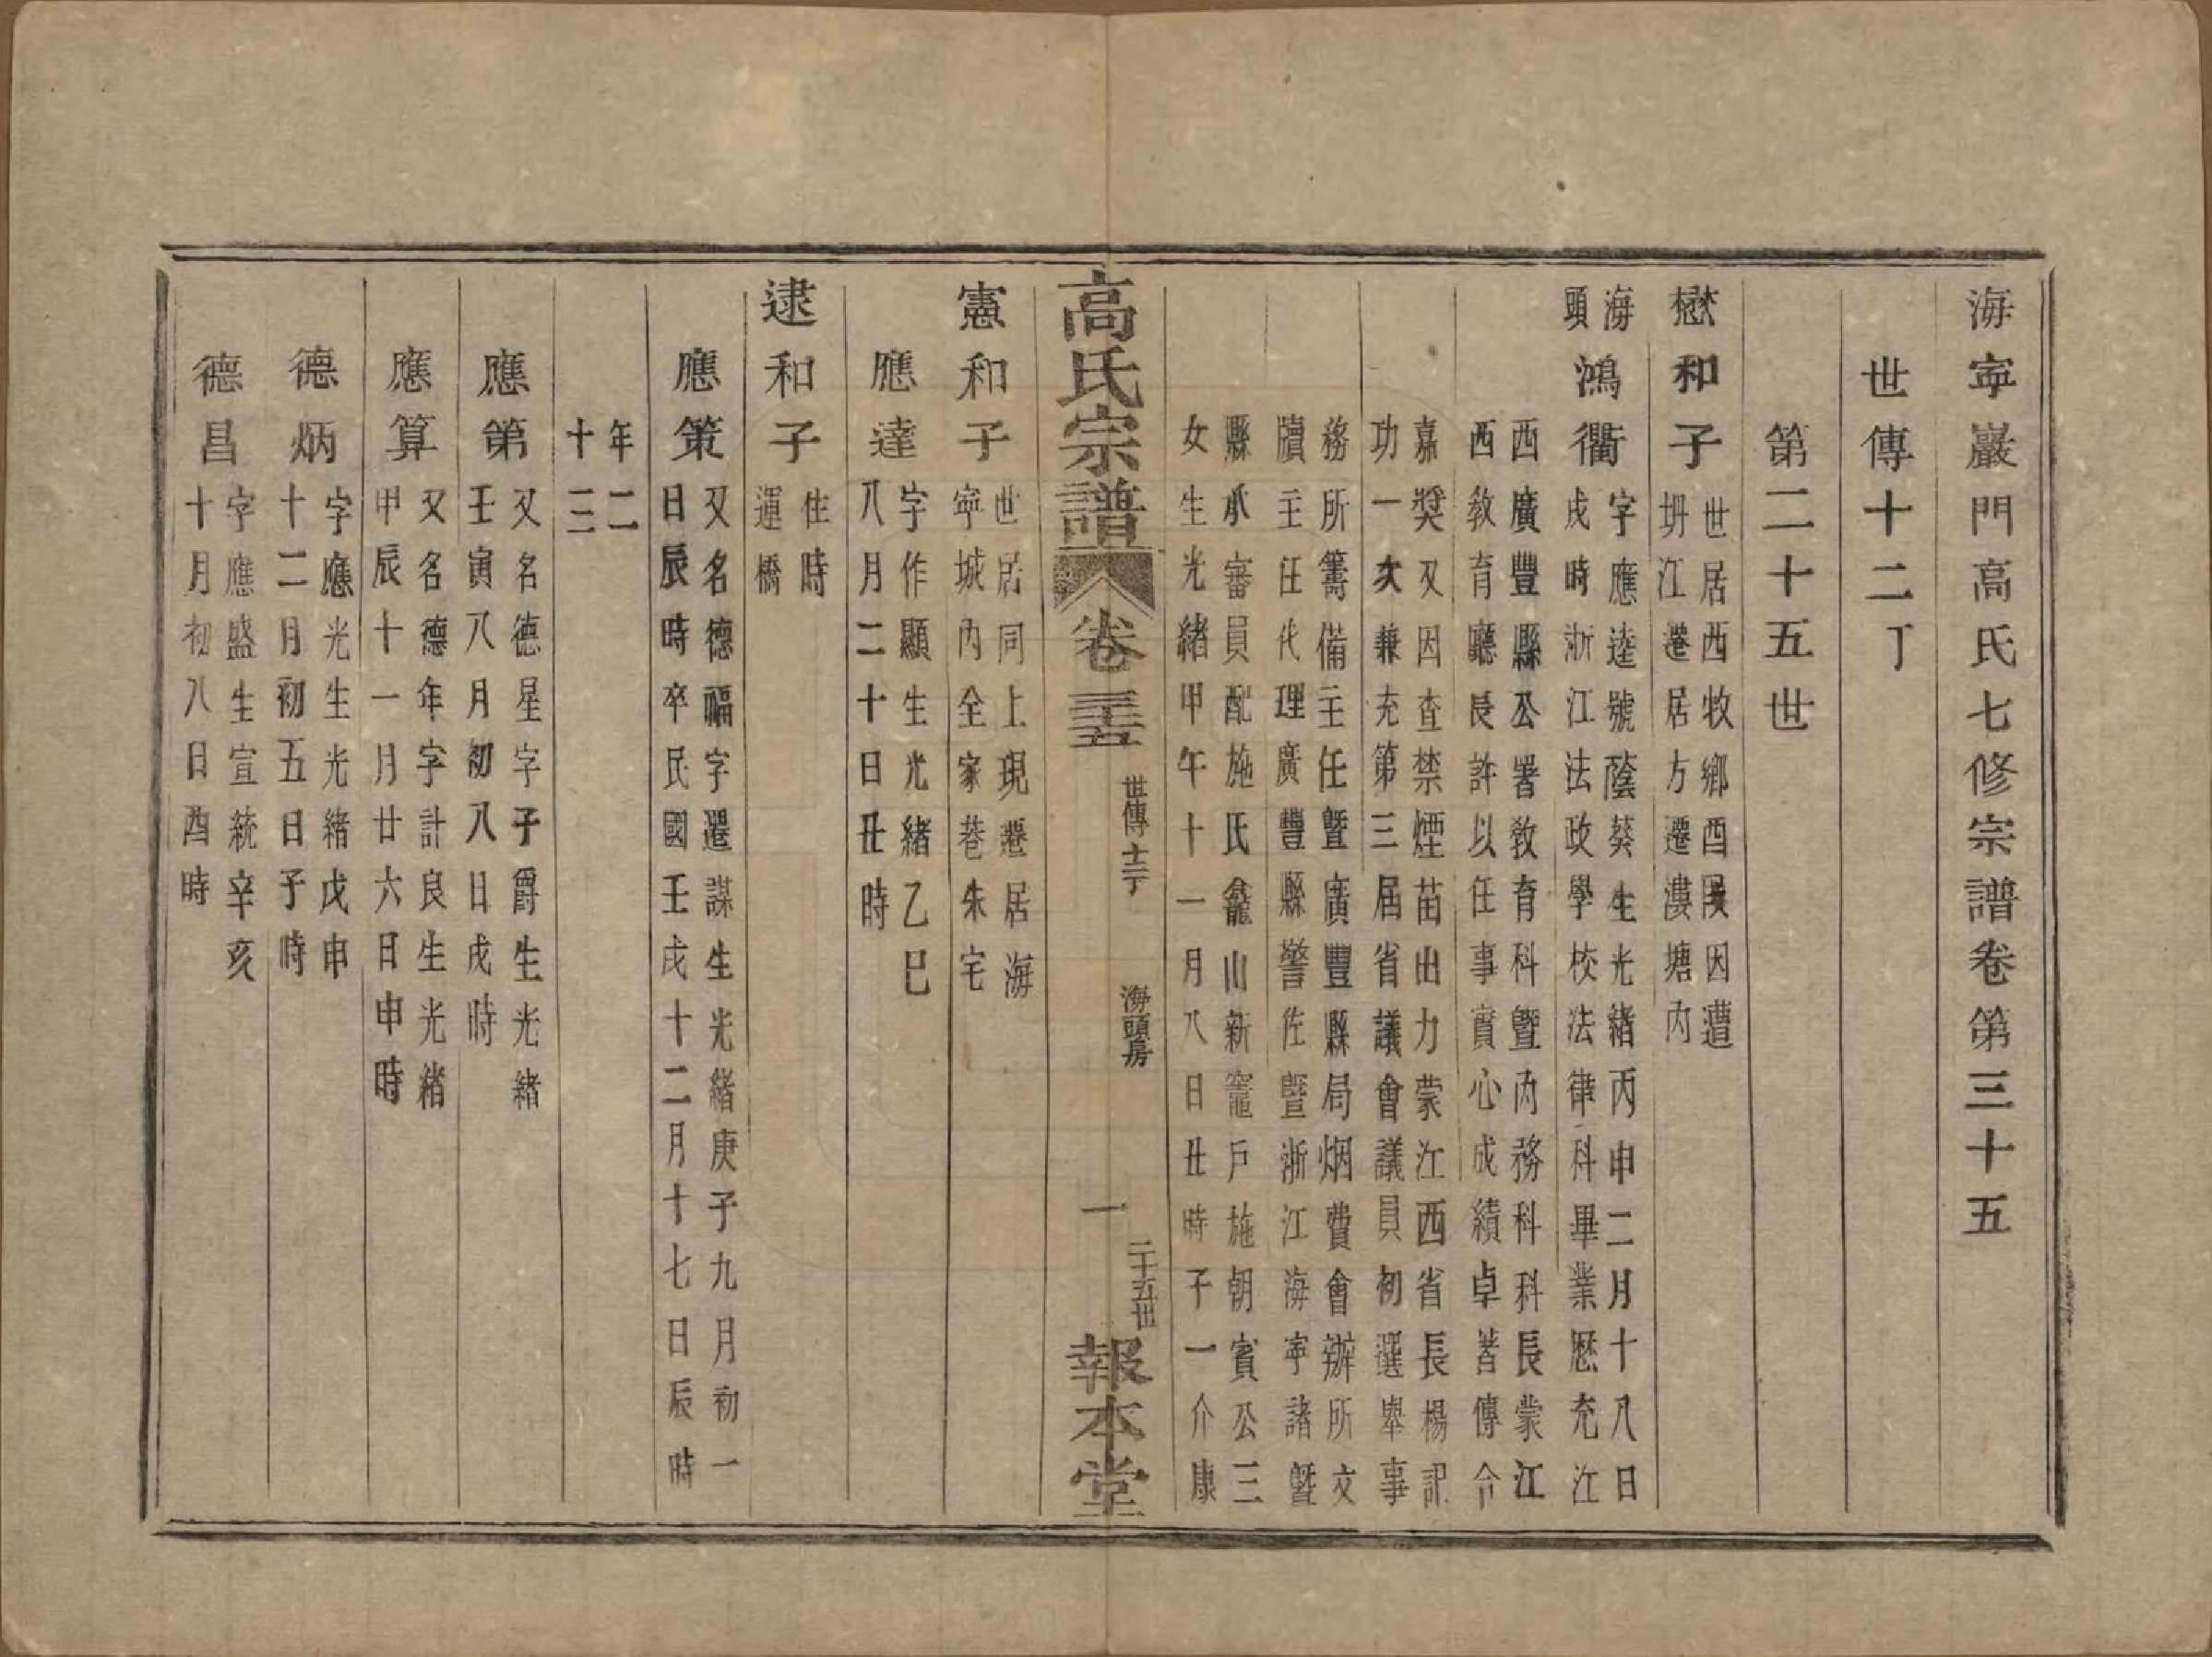 海寧巖門高氏七修宗譜卷第三十五
世傳十二丁
第二十五世
懋和子
世居西牧鄉酉叚因遭
坍江遷居方遷漊塘內
海頭
鴻衢
字應逵號蔭葵生光緒丙申二月十八日
戌時浙江法政學校法律科畢業歷充江
西廣豐縣公署敎育科曁內務科科長蒙江
西敎育廳長許以任事實心成績卓著傳令
嘉奬又因查禁煙苗出力蒙江西省長楊記
功一次兼充第三屆省議會議員初選舉事
務所籌備主任曁廣豐縣局烟費會辦所文
牘主任代理廣豐縣警佐曁浙江海寧諸曁
縣承審員配施氏龕山新竈戶施朝賓公三
女生光緒甲午十一月八日丑時子一介康
高氏宗譜
卷三十五
世傳十二丁
海頭房
一
二十五世
報本堂
憲和子
世居同上現遷居海
寧城內全家巷朱宅
應達
字作顯生光緒乙巳
八月二十日丑時
逮和子
住時
運橋
應策
又名德福字還謀生光緒庚子九月初一
日辰時卒民國壬戌十二月十七日辰時
年二
十三
應第
又名德星字子爵生光緒
壬寅八月初八日戌時
應算
又名德年字計良生光緒
甲辰十一月廿六日申時
德炳
字應光生光緒戊申
十二月初五日子時
德昌
字應盛生宣統辛亥
十月初八日酉時